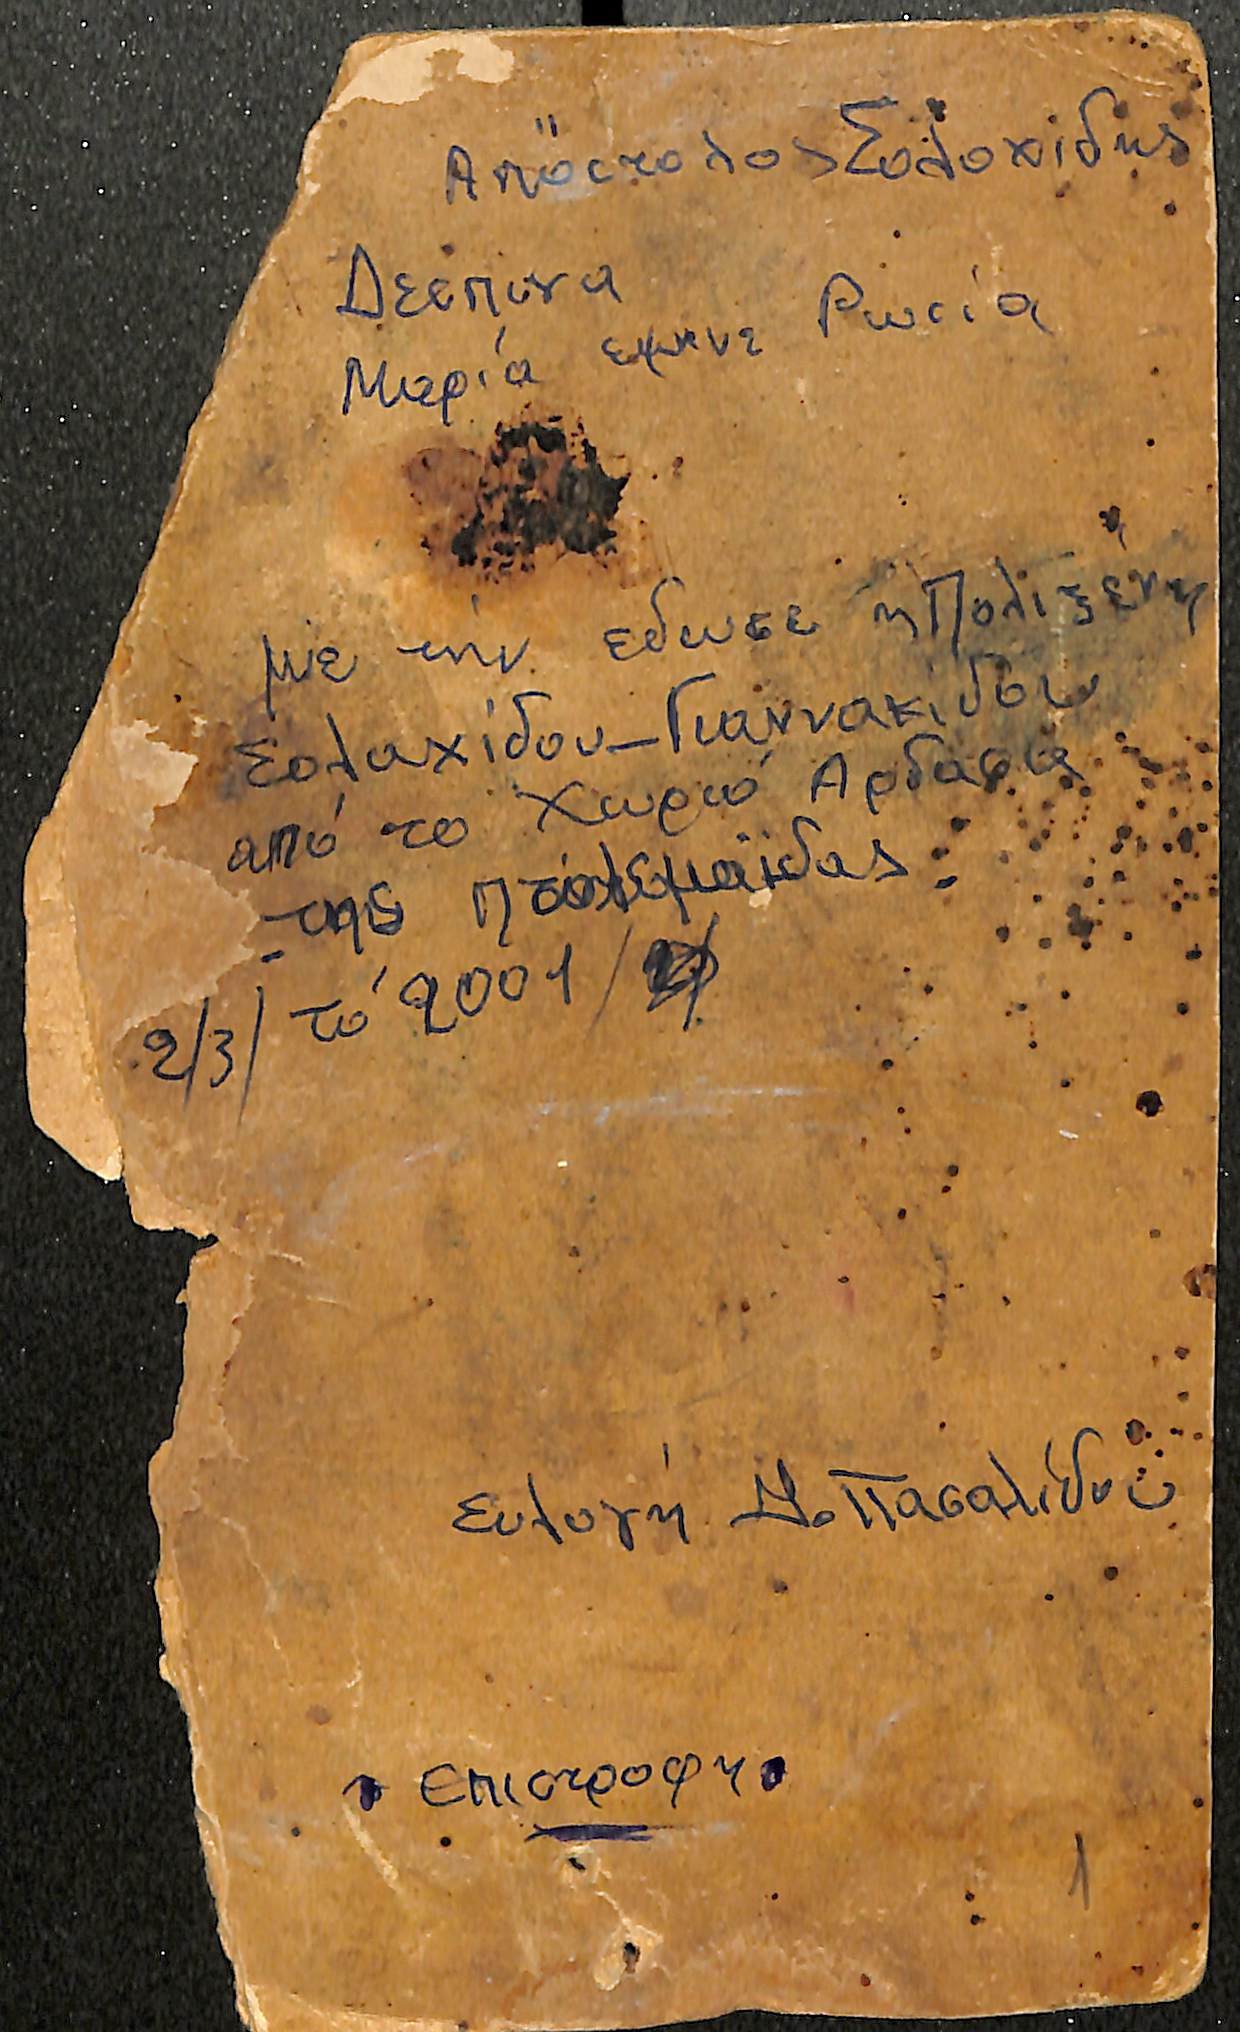 Απόστολος Σολοχίδης
Δεσπινα
Μαρία εμεινε Ρωσία
με την εδωσε η Πολιξένη
Σολαχίδου-Γιαννακίδου
από το χωριό Αρδασα
της Πτολεμαϊδας
2/3/ το 2001/
Ευλογή Δ. Πασαλίδου
• επιστροφη •
1